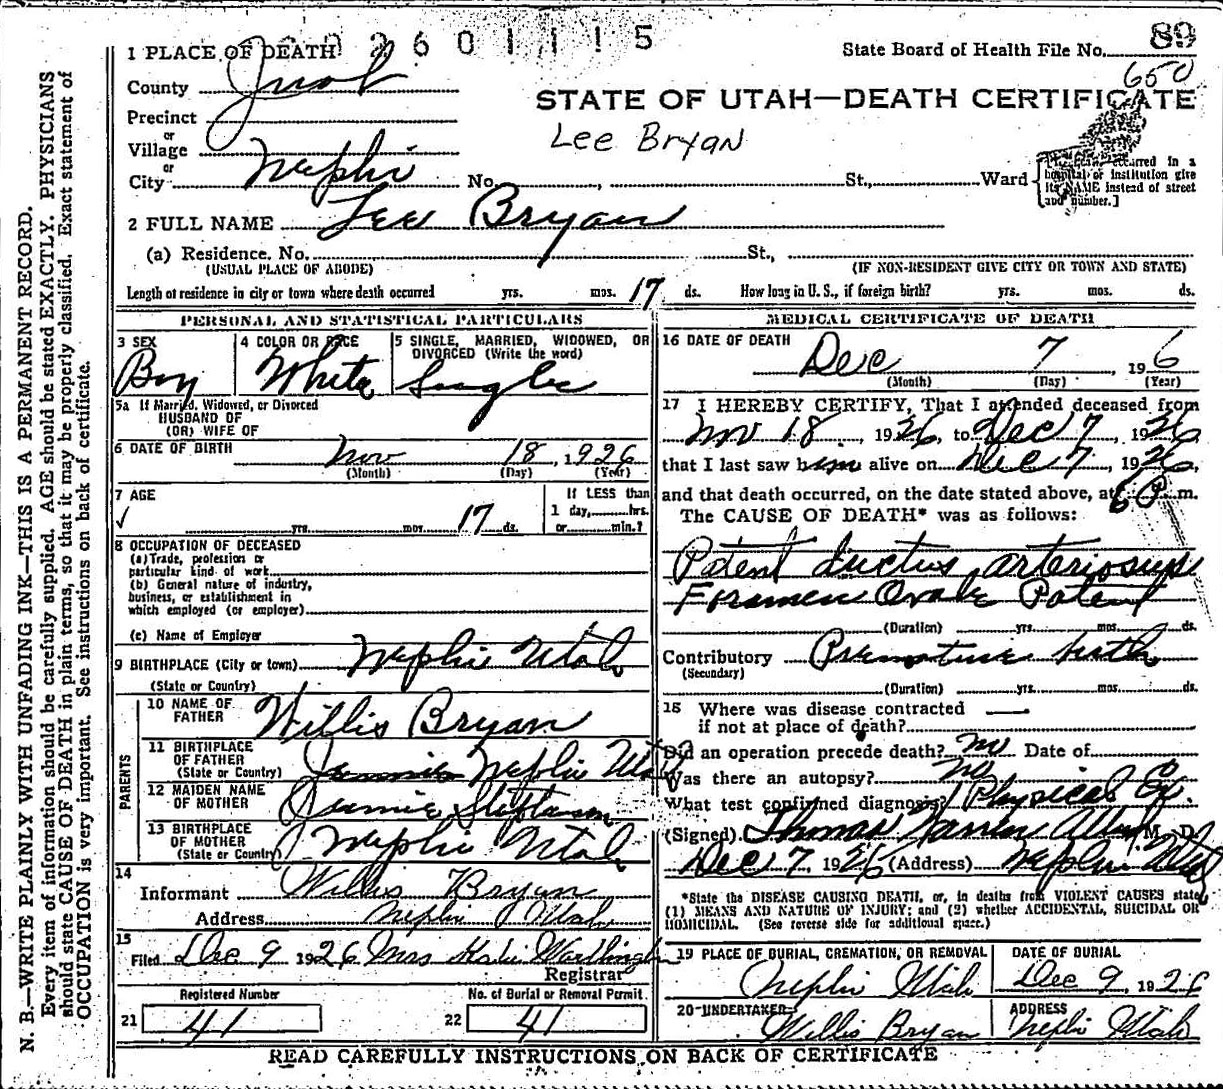 2601115
State Board of Health File No. 89
650
STATE OF UTAH—DEATH CERTIFICATE
Lee Bryan
1 PLACE OF DEATH
County Juab
Precinct
or
Village
or
City Nephi No. , St., Ward
{ occurred in a
hospital or institution give
its NAME instead of street
and number.]
2 FULL NAME Lee Bryan
(a) Residence. No. St.,
(USUAL PLACE OF ABODE) (IF NON-RESIDENT GIVE CITY OR TOWN AND STATE)
Length of residence in city or town where death occurred yrs. mos. 17 ds. How long in U. S., if foreign birth? yrs. mos. ds.
PERSONAL AND STATISTICAL PARTICULARS
3 SEX
Boy
4 COLOR OR RACE
White
5 SINGLE, MARRIED, WIDOWED, OR
DIVORCED (Write the word)
Single
5a If Married, Widowed, or Divorced
HUSBAND OF
(OR) WIFE OF
6 DATE OF BIRTH Nov 18, 1926
(Month) (Day) (Year)
7 AGE
yrs. mos. 17 ds.
If LESS than
1 day, hrs.
or min.?
8 OCCUPATION OF DECEASED
(a) Trade, profession or
particular kind of work
(b) General nature of industry,
business, or establishment in
which employed (or employer)
(c) Name of Employer
9 BIRTHPLACE (City or town) Nephi Utah
(State or Country)
PARENTS
10 NAME OF
FATHER Willis Bryan
11 BIRTHPLACE
OF FATHER Nephi Utah
(State or Country)
12 MAIDEN NAME
OF MOTHER Jennie
13 BIRTHPLACE
OF MOTHER Nephi Utah
(State or Country)
14
Informant Willis Bryan
Address Nephi Utah
15
Filed Dec 9 1926 Mrs
Registrar
Registered Number
21 41
No. of Burial or Removal Permit
22 41
MEDICAL CERTIFICATE OF DEATH
16 DATE OF DEATH
Dec 7, 1926
(Month) (Day) (Year)
17 I HEREBY CERTIFY, That I attended deceased from
Nov 18, 1926, to Dec 7, 1926
that I last saw him alive on Dec 7, 1926,
and that death occurred, on the date stated above, at 6 P. m.
The CAUSE OF DEATH* was as follows:
Patent ductus arteriosus
Foramen Ovale Patent
(Duration) yrs. mos. ds.
Contributory Premature birth
(Secondary)
(Duration) yrs. mos. ds.
18 Where was disease contracted
if not at place of death?
Did an operation precede death? no Date of
Was there an autopsy? no
What test confirmed diagnosis? Physical Ex.
(Signed) Thomas M. D.
Dec 7, 1926 (Address) Nephi Utah
*State the DISEASE CAUSING DEATH, or, in deaths from VIOLENT CAUSES state
(1) MEANS AND NATURE OF INJURY; and (2) whether ACCIDENTAL, SUICIDAL OR
HOMICIDAL. (See reverse side for additional space.)
19 PLACE OF BURIAL, CREMATION, OR REMOVAL
Nephi Utah
DATE OF BURIAL
Dec 9, 1926
20 UNDERTAKER
Willis Bryan
ADDRESS
Nephi Utah
READ CAREFULLY INSTRUCTIONS ON BACK OF CERTIFICATE
N. B.—WRITE PLAINLY WITH UNFADING INK—THIS IS A PERMANENT RECORD.
Every item of information should be carefully supplied. AGE should be stated EXACTLY. PHYSICIANS
should state CAUSE OF DEATH in plain terms, so that it may be properly classified. Exact statement of
OCCUPATION is very important. See instructions on back of certificate.